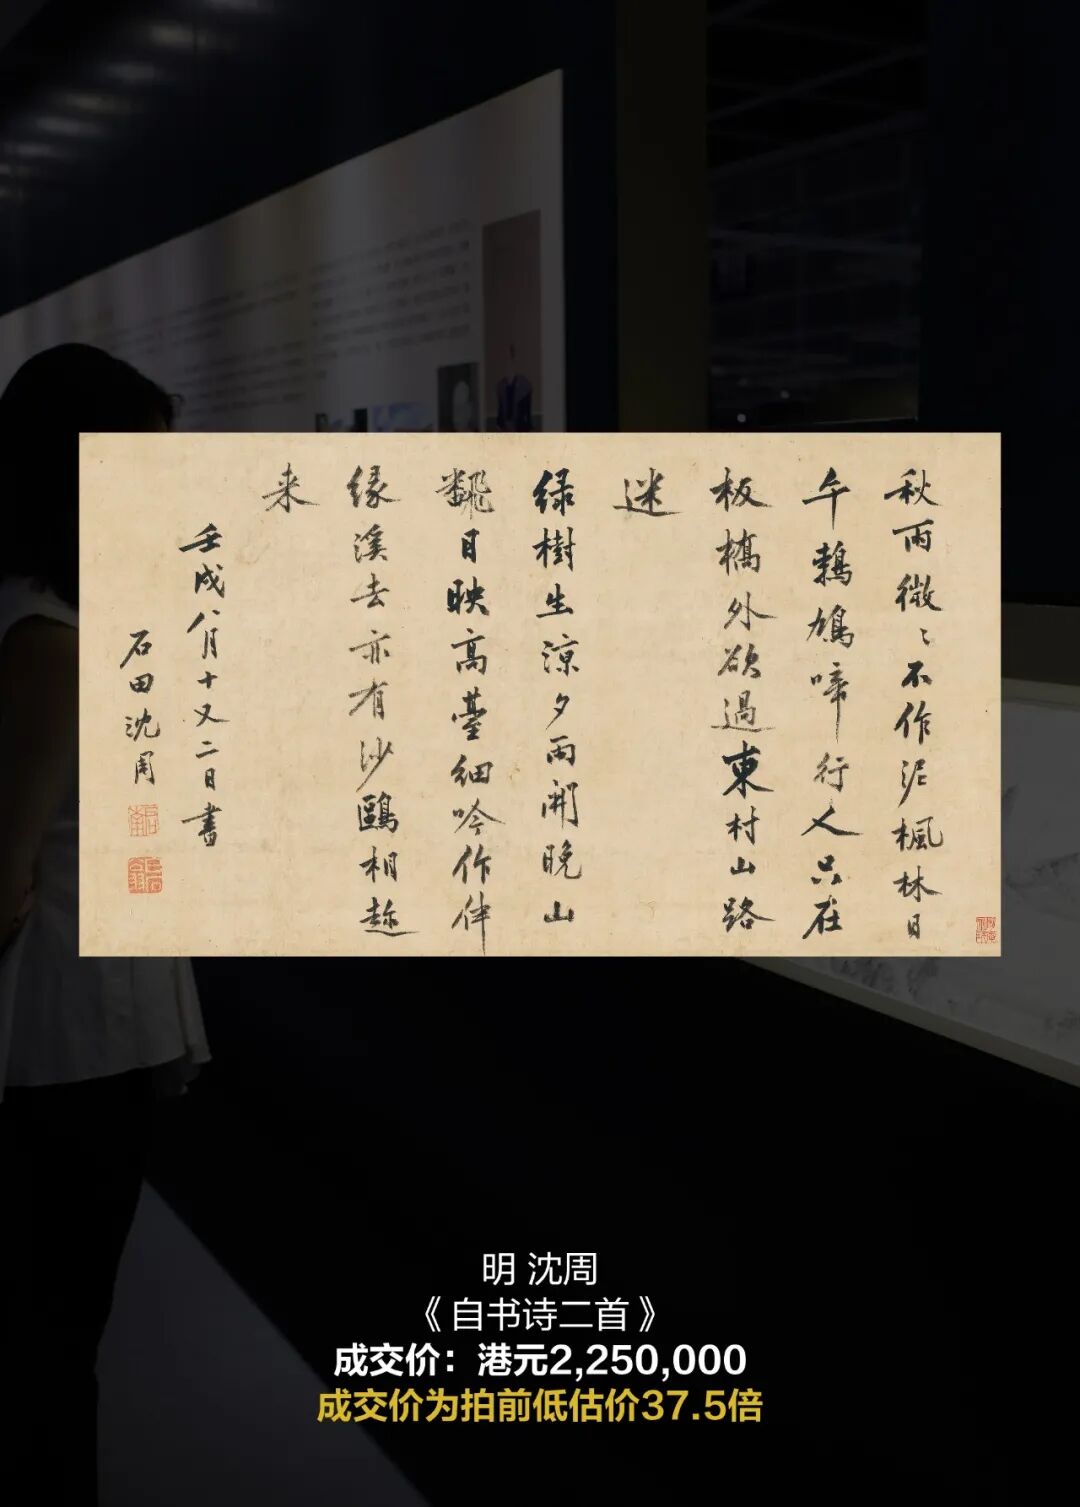 秋雨微〻不作泥楓林日
午鵓鳩啼行人只在
板橋外欲過東村山路
迷
綠樹生涼夕雨開晚山
飜日映高臺細吟作伴
緣溪去亦有沙鷗相趂
来
壬戌八月十又二日書
石田沈周
明 沈周
《自书诗二首》
成交价：港元2,250,000
成交价为拍前低估价37.5倍